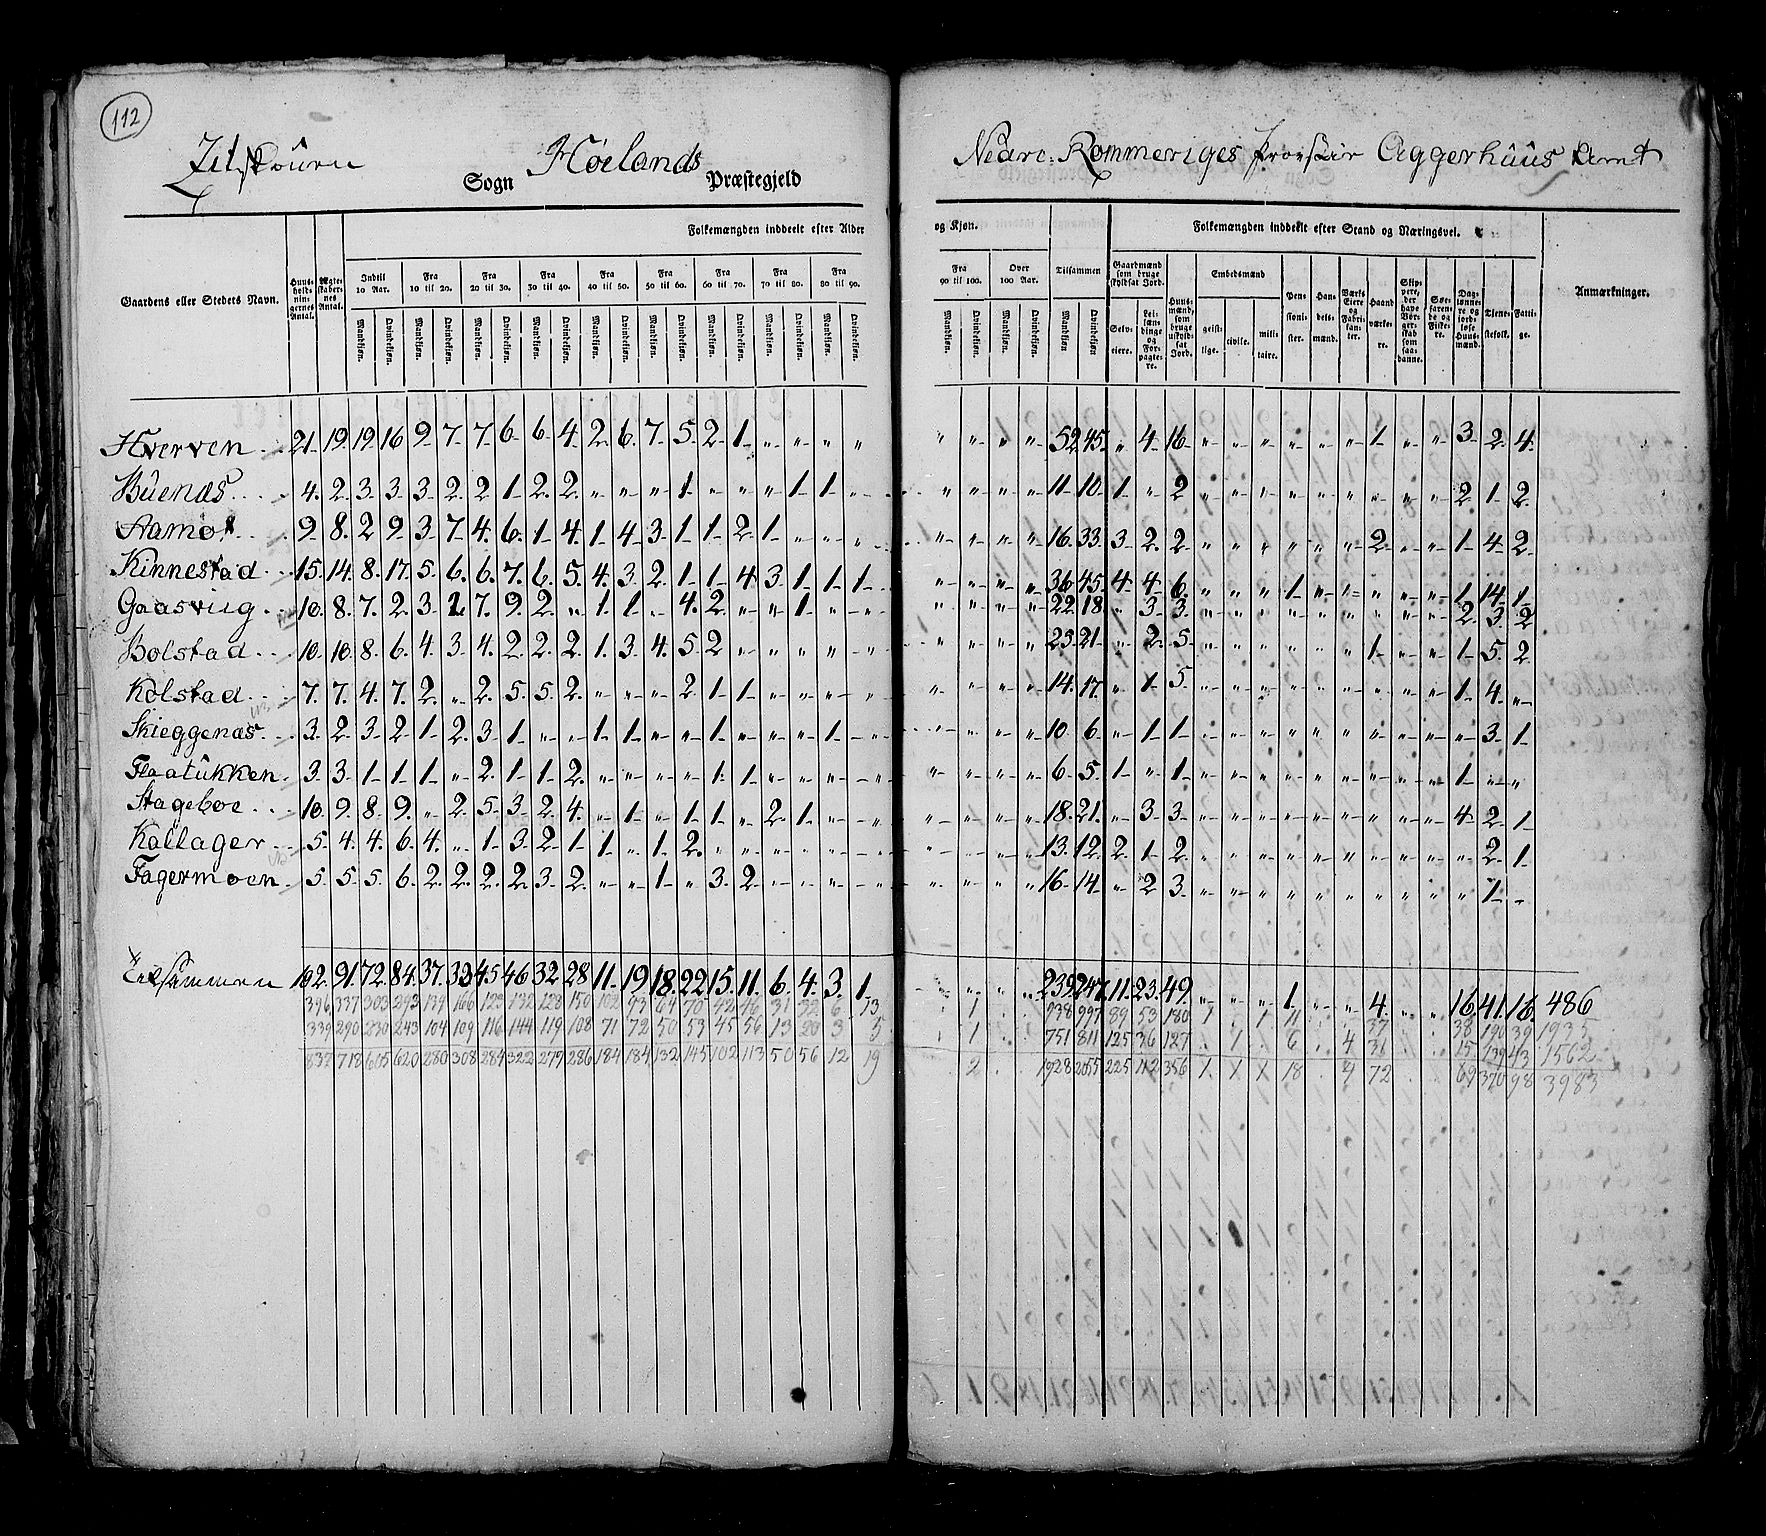 112
Høelands
Sogn Præstegjeld
Nedre Rommeriges Provstie Aggerhuus Amt
Folkemængden inddeelt efter Alder og Kjøn.
Folkemængden inddeelt efter Stand og Næringsvei.
Gaardens eller Stedets Navn.
Huusholdningernes Antal.
Ægteskabernes Antal.
Indtil 10 Aar.
Fra 10 til 20.
Fra 20 til 30.
Fra 30 til 40.
Fra 40 til 50.
Fra 50 til 60.
Fra 60 til 70.
Fra 70 til 80.
Fra 80 til 90.
Fra 90 til 100.
Over 100 Aar.
Tilsammen
Mandkjøn. Qvindekjøn.
Gaardmænd som bruge skyldsat Jord.
Selveiere.
Leilændinge og Forpagtere.
Huusmænd, som bruge uskyldsat Jord.
Embedsmænd
geistlige. civile. militaire.
Pensionister.
Handelsmænd.
Værks Eiere og Fabrikanter.
Haandværkere.
Skippere, der have Borgerskab som saadanne.
Søefarende og Fiskere.
Daglønnere og jordløse Huusmænd.
Tienestefolk.
Fattige.
Anmærkninger.
Hverven 21 19 19 16 9 7 7 6 6 4 2 6 7 5 2 1 „ „ „ „ „ „ „ „ 52 45 „ 4 16 „ „ „ „ „ „ 1 „ „ 3 2 4
Buenæs 4 2 3 3 3 2 2 1 2 2 „ „ „ 1 „ „ „ 1 1 „ „ „ „ „ 11 10 1 „ 2 „ „ „ „ „ „ „ „ „ 2 1 2
Aamot 9 8 2 9 3 7 4 6 1 4 1 4 3 1 1 2 1 „ „ „ „ „ „ „ 16 33 3 2 2 „ „ „ „ „ „ 2 „ „ 1 4 2
Kinnestad 15 14 8 17 5 6 6 7 6 5 4 3 2 1 1 4 3 1 1 1 „ „ „ „ 36 45 4 4 6 „ „ „ 1 „ „ „ „ „ 1 14 1
Gaasviig 10 8 7 2 3 1 7 9 2 „ 1 1 „ 4 2 „ „ 1 „ „ „ „ „ „ 22 18 „ 3 3 „ „ „ „ „ „ „ „ „ 2 3 2
Bolstad 10 10 8 6 4 3 4 2 2 2 1 3 4 5 2 „ „ „ „ „ „ „ „ „ 23 21 „ 2 5 „ „ „ „ „ „ 1 „ „ 1 5 2
Kolstad 7 7 4 7 2 „ 2 5 5 2 „ „ „ 2 1 1 „ „ „ „ „ „ „ „ 14 17 „ 1 5 „ „ „ „ „ „ „ „ „ 1 4 „
Skieggenæs 3 2 3 2 1 2 3 1 „ „ 1 1 „ „ 1 „ „ „ 1 „ „ „ „ „ 10 6 „ 1 1 „ „ „ „ „ „ „ „ „ „ 3 1
Flaatukken 3 3 1 1 1 „ 2 1 1 2 „ „ „ „ 1 1 „ „ „ „ „ „ „ „ 6 5 1 „ 1 „ „ „ „ „ „ „ „ „ 1 „ „
Stageboe 10 9 8 9 „ 2 5 3 2 4 „ 1 „ 1 1 „ 2 1 „ „ „ „ „ „ 18 21 „ 3 3 „ „ „ „ „ „ „ „ „ 4 2 1
Kollager 5 4 4 6 4 „ 1 3 2 1 1 „ 1 2 „ „ „ „ „ „ „ „ „ „ 13 12 2 1 2 „ „ „ „ „ „ „ „ „ „ 2 1
Fagermoen 5 5 5 6 2 2 2 2 3 2 „ „ 1 „ 3 2 „ „ „ „ „ „ „ „ 16 14 „ 2 3 „ „ „ „ „ „ „ „ „ „ 1 „
Tilsammen 102 91 72 84 37 33 45 46 32 28 11 19 18 22 15 11 6 4 3 1 „ „ „ „ 239 247 11 23 49 „ „ „ 1 „ „ 4 „ „ 16 41 16 486
396 337 303 293 139 166 123 132 128 150 102 93 64 70 42 46 31 32 6 13 1 938 997 89 53 180 1 1 11 37 38 190 39 1935
339 290 230 243 104 109 116 144 119 108 71 72 50 53 45 56 13 20 3 5 1 751 811 125 36 127 1 6 4 31 15 139 43 1562
837 718 605 620 280 308 284 322 279 286 184 184 132 145 102 113 50 56 12 19 2 1928 2055 225 112 356 1 1 1 18 4 72 69 370 98 3983